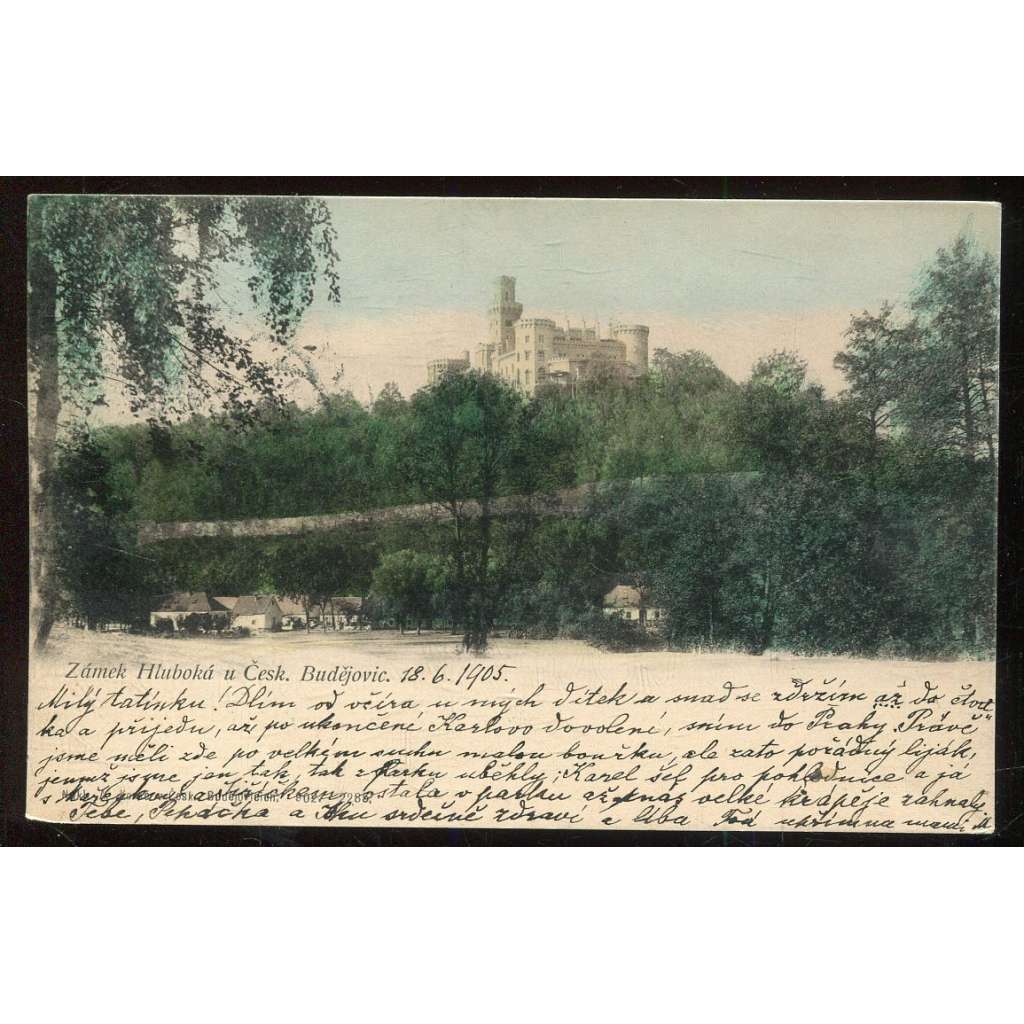 Zámek Hluboká u Česk. Budějovic. 18. 6. 1905.
Milý tatínku! Dlím od včíra u mých dítek a snad se zdržím až do čtvrt-
ka a přijedu, až po ukončení Karlovo dovolení, sním do Prahy. Právě
jsme měli zde po velkým suchu malou bouřku, ale zato pořádný liják,
jemuž jsme jen tak, tak z parku uběhly; Karel šel pro pohlednice a já
s zůstala v parku až nás velké krápěje zahnaly
Tebe, a srdečně zdraví a líbá Tvá upřímná